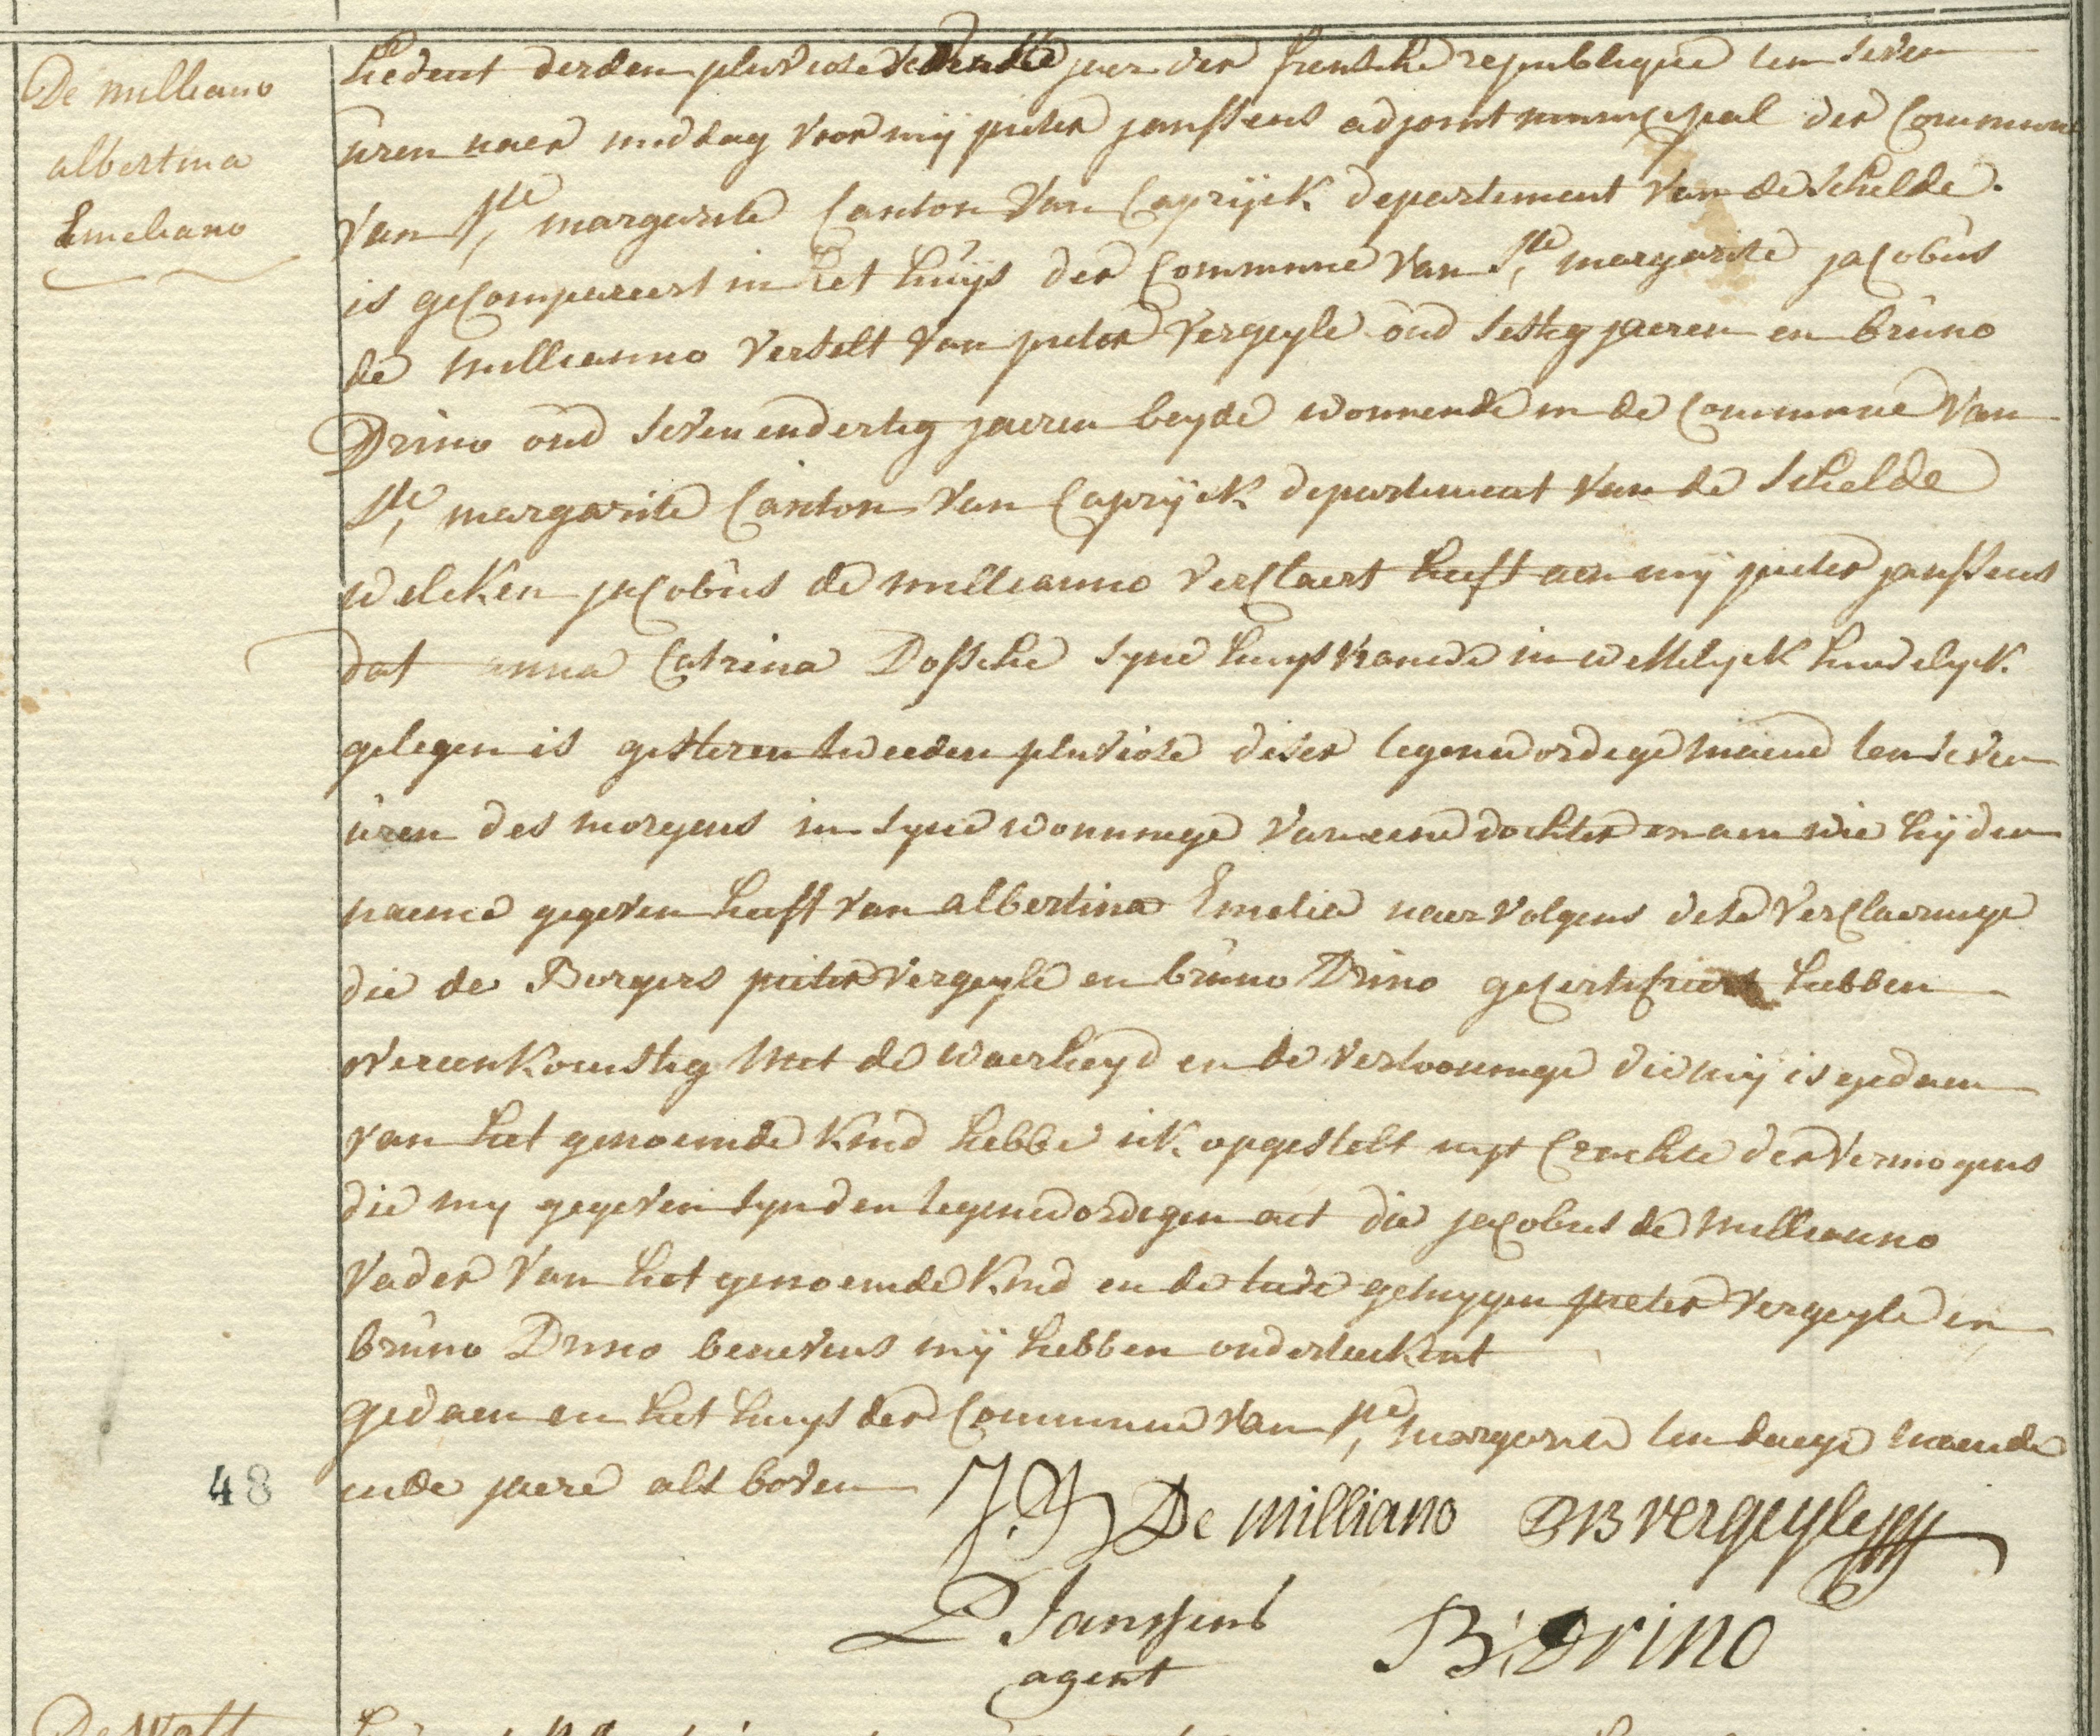 De milliano
albertina
Emeliano
hedent derden pluviose seste jaer der fransche republique ten seven
uren naer middag voor mij pieter janssens adjoint municipal der Commune
van Ste margarite Canton van Caprijck departement van de schelde.
is gecompareert in het huijs der Commune van Ste margarite jacobus
de millianno verselt van pieter vergeyle oud sestig jaeren en bruno
Drino oud seven en dertig jaeren beyde wonnende in de Commune van
Ste margarite Canton van Caprijck departement van de schelde
welcken jacobus de millianno verclaert heeft aen mij pieter janssens
dat anna Catrina Dossche syne huysvrauwe in wettelyck huwelyck
gelegen is gisteren tweeden pluviose deser tegenwordige maend ten seven
uren des morgens in syne wonninge van eene dochter en aen wie hij den
naeme gegeven heeft van albertina Emelia naer volgens dese verclaeringe
die de Borgers pieter vergeyle en bruno Drino gecertifieert hebben
overeenkomstig met de waerheyd en de vertooninge die mij is gedaen
van het genoemde kind hebbe ick opgestelt uyt Crachte der vermogens
die my gegeven syn den tegenwordigen act die jacobus de millianno
vader van het genoemde kind en de twee getuygen pieter vergeyle en
bruno Drino benevens mij hebben onderteekent
gedaen en het huys der Commune van Ste margarite ten daege maende
ende jaere als boven
J. J De milliano PB vergeyle
48
P Janssens B: Drino
agent